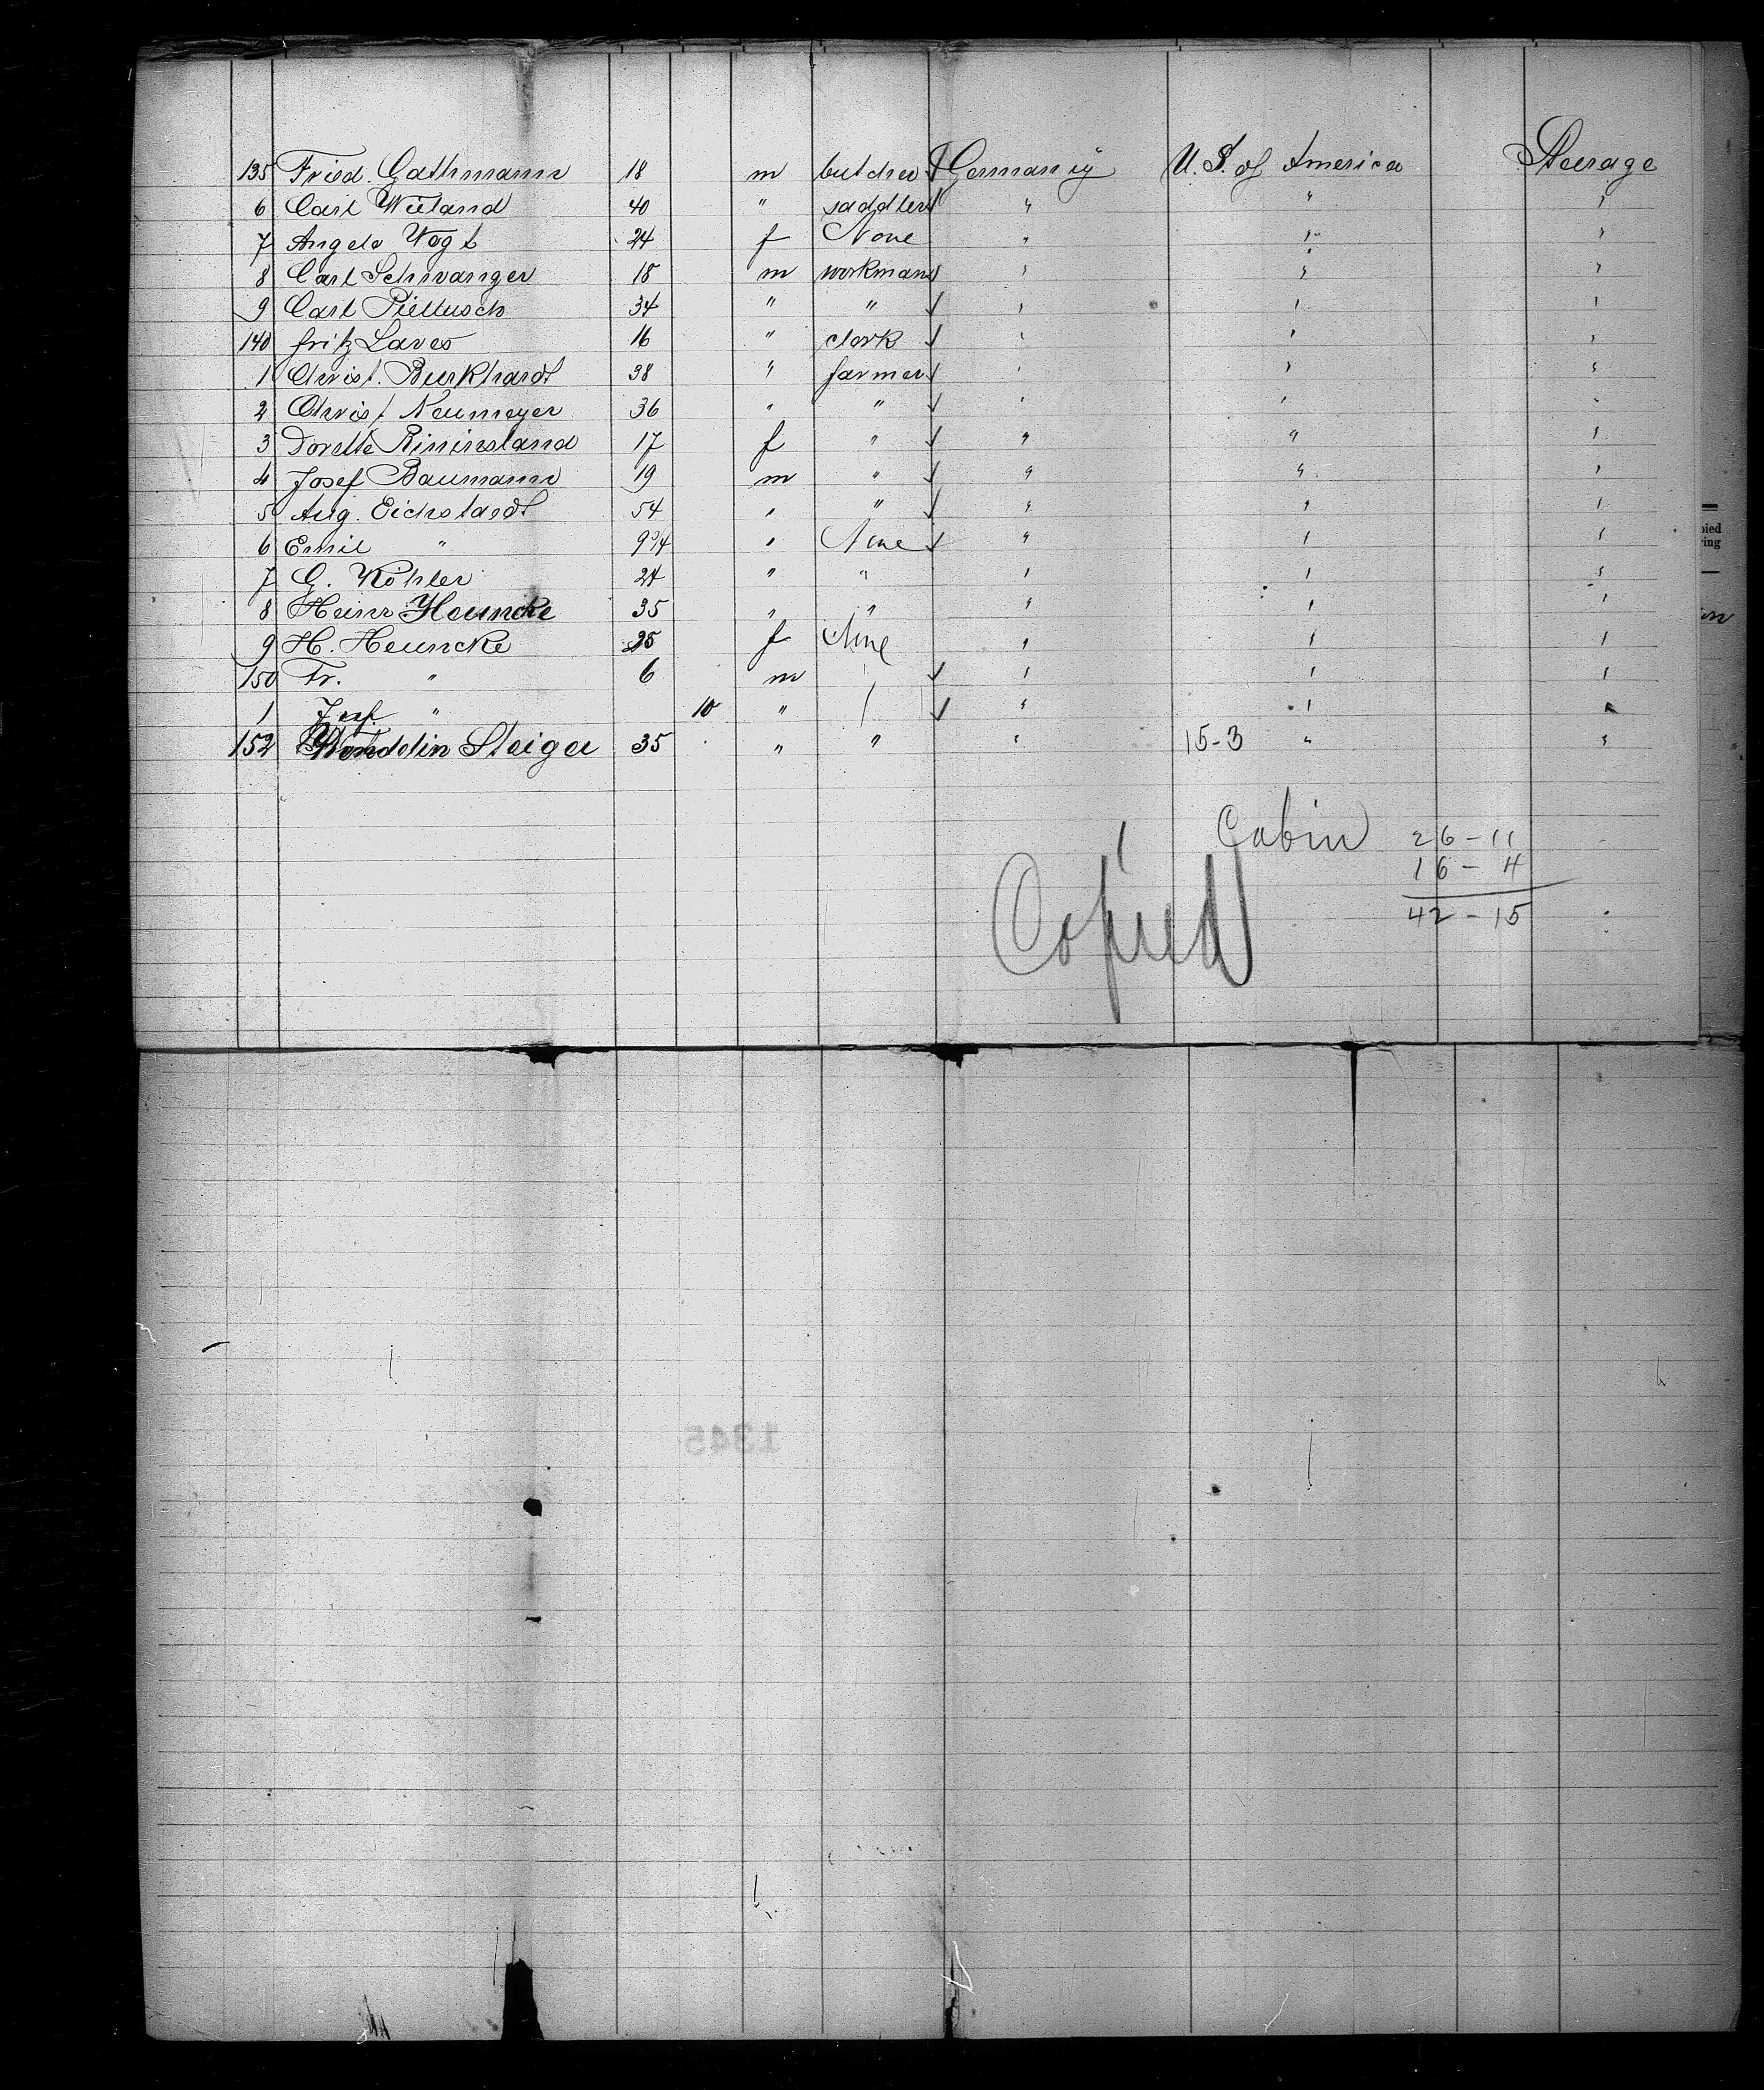 135 Fried. Gathmann 18 m butcher Germany U.S. of America Steerage
6 Carl Wieland 40 " saddler " " "
7 Angela Vogt 24 f None " " "
8 Carl Schwanger 18 m workman " " "
9 Carl Piellusch 34 " " " " "
140 Fritz Laves 16 " clerk " " "
1 Christ. Burkhardt 38 " farmer " " "
2 Christ Neumeyer 36 " " " " "
3 Dorette Rininsland 17 f " " " "
4 Josef Baumann 19 m " " " "
5 Aug. Eichstardt 54 " " " " "
6 Emil " 9 " None " " "
7 G. Köhler 24 " " " " "
8 Heinr. Heuncke 35 " " " " "
9 H. Heuncke 25 f None " " "
150 Fr. " 6 m " " "
1 Josf. " 10 " " " "
152 Wendelin Steiger 35 " " " 15-3 " "
Cabin 26-11
16-4
42-15
Copied
1345